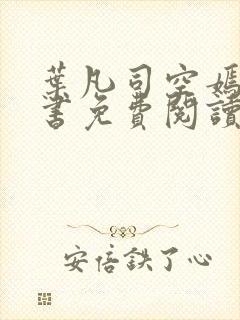 葉凡司空嫣
書免費閱讀
安倍鉄了心